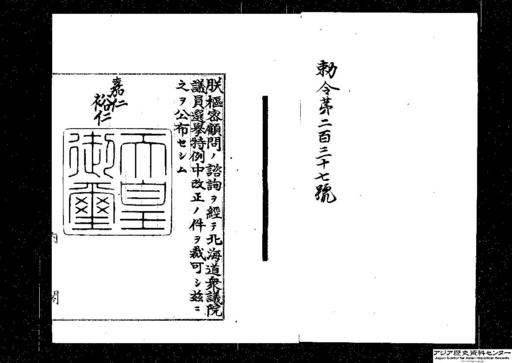 勅令第二百三十七號
朕樞密顧問ノ諮詢ヲ經テ北海道衆議院
議員選擧特例中改正ノ件ヲ裁可シ茲ニ
之ヲ公布セシム
嘉仁
裕仁
天皇
御璽
内閣
アジア歴史資料センター
Japan Center for Asian Historical Records